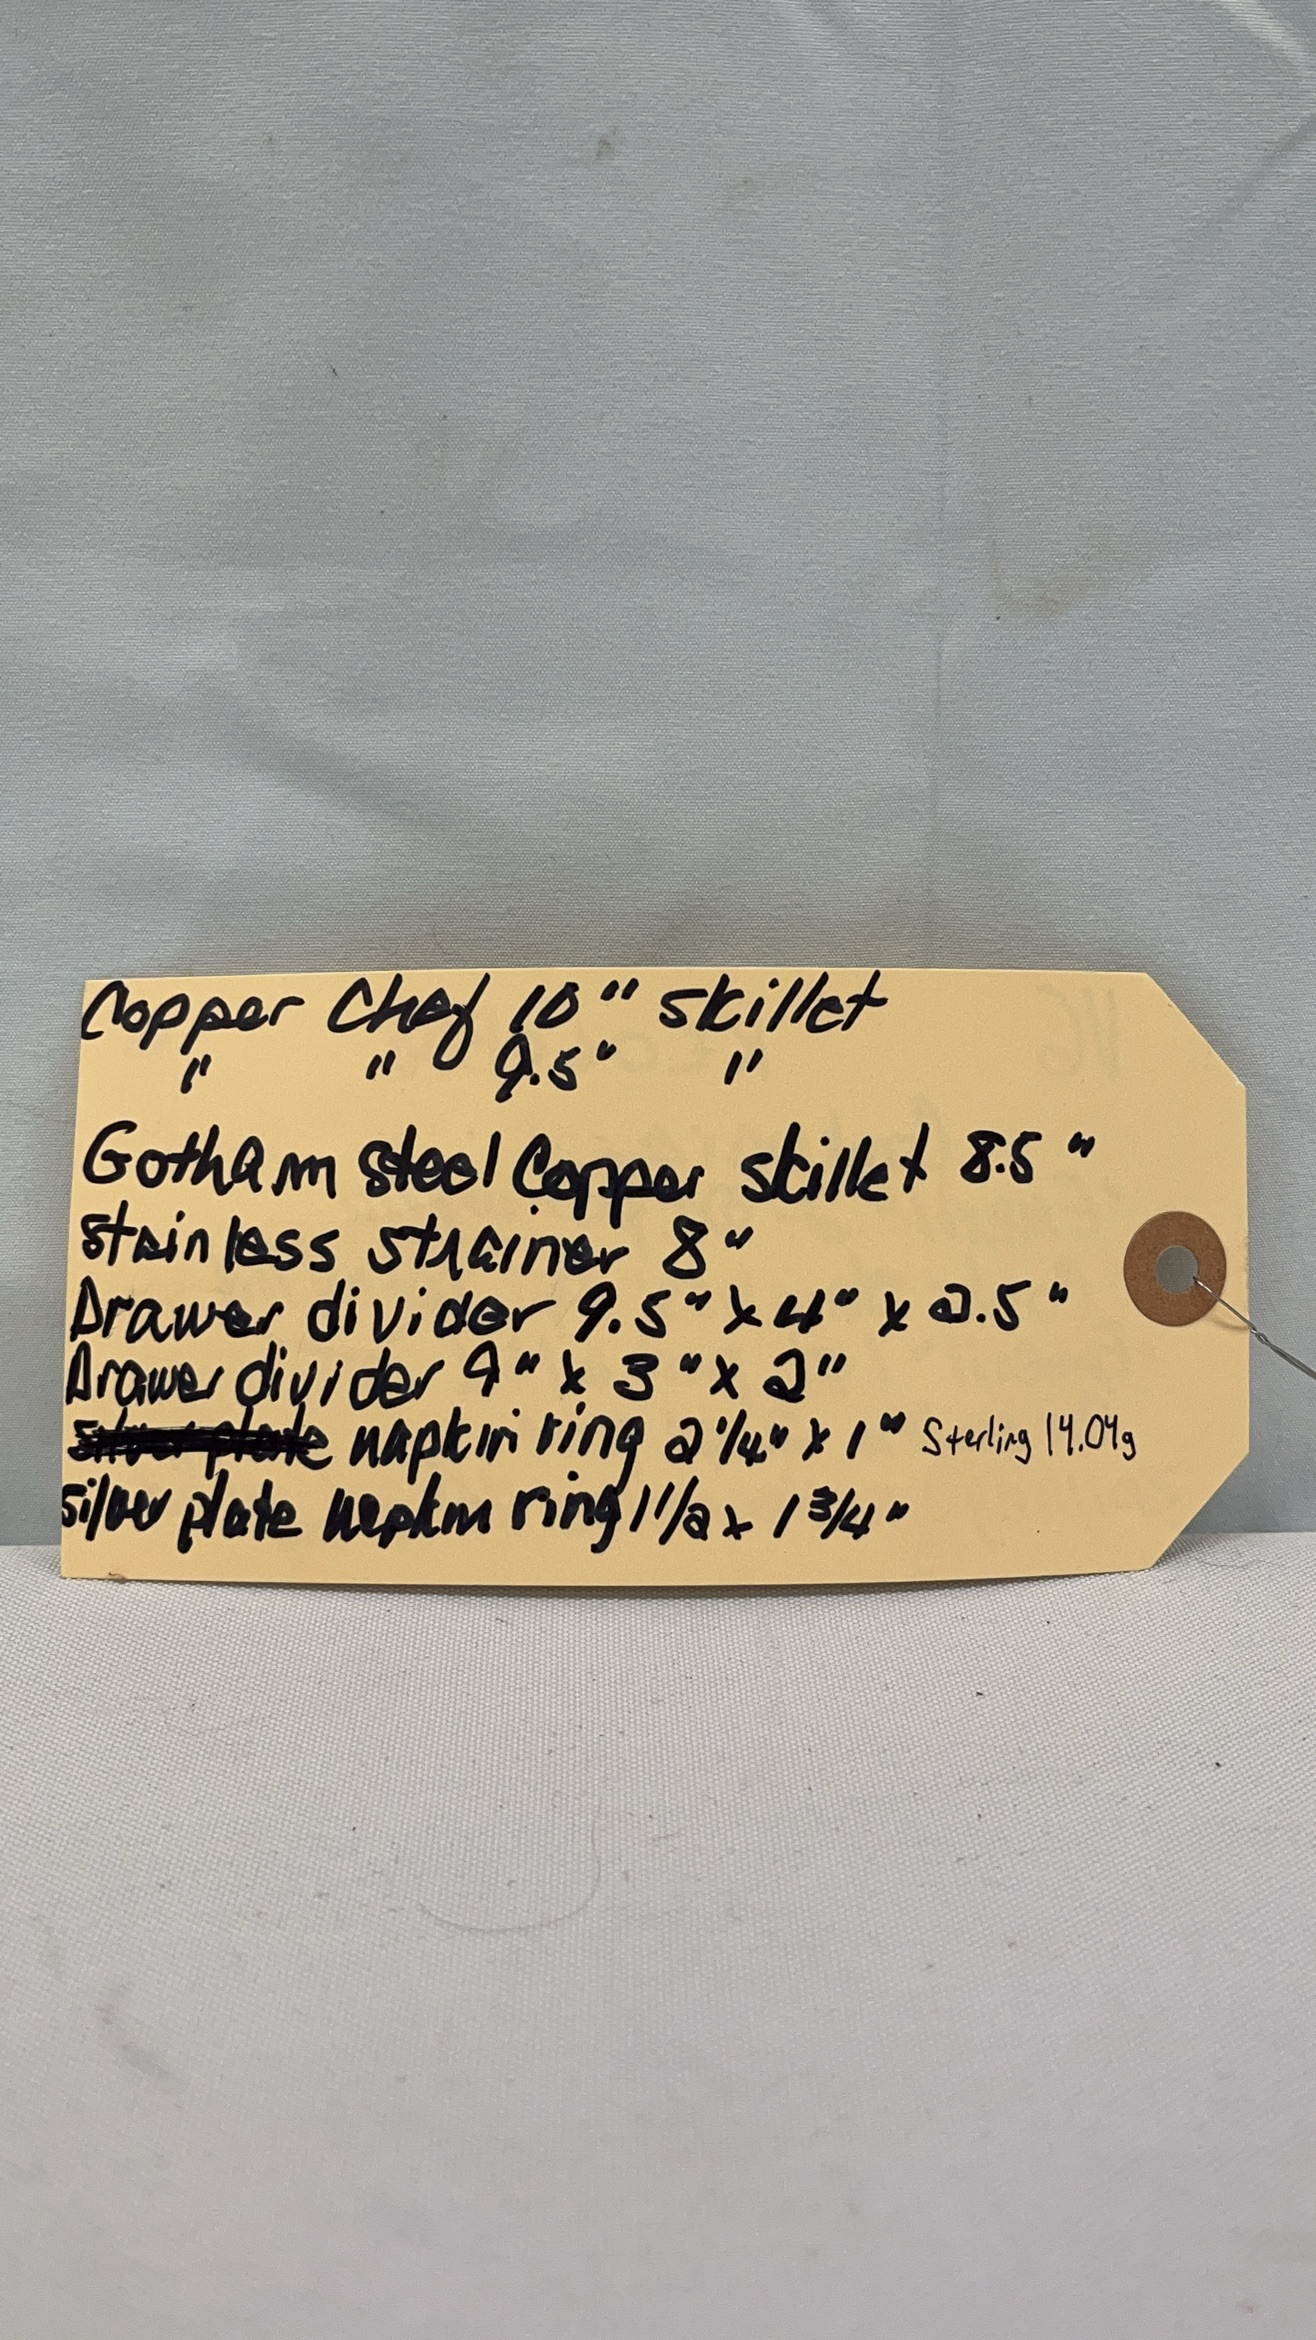 Copper Chef 10" skillet
" " 9.5" "
Gotham steel Copper skillet 8.5"
stainless strainer 8"
Drawer divider 9.5" x 4" x 2.5"
Drawer divider 9" x 3" x 2"
silver plate napkin ring 2 1/4" x 1" Sterling 14.04g
silver plate napkin ring 1 1/2 x 1 3/4"